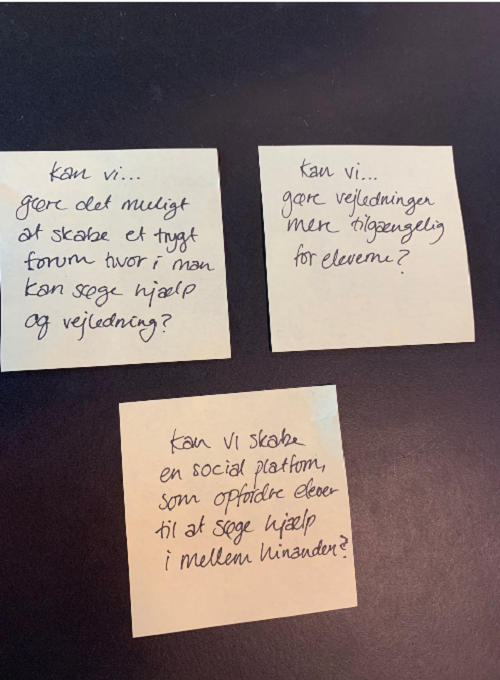 Kan vi...
gøre det muligt
at skabe et trygt
forum hvor i man
kan søge hjælp
og vejledning?
Kan vi...
gøre vejledningen
mere tilgængelig
for eleverne?
Kan vi skabe
en social platform,
som opfordre elever
til at søge hjælp
i mellem hinanden?